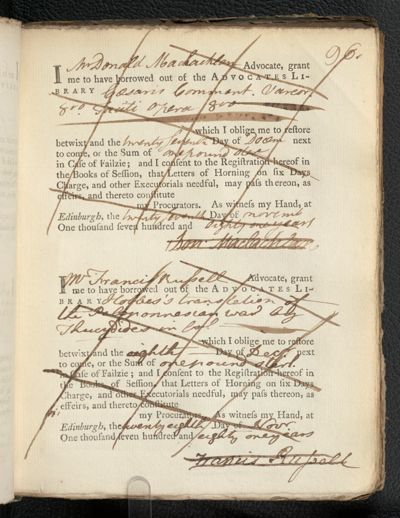 96.
I Mr Donald Maclachlan Advocate, grant
me to have borrowed out of the ADVOCATES LI-
BRARY Cæsaris Comment. Varior
8vo Taciti Opera 8vo
which I oblige me to restore
betwixt and the twenty seventh Day of Decem next
to come, or the Sum of one pound
in Case of Failzie; and I consent to the Registration hereof in
the Books of Session, that Letters of Horning on six Days
Charge, and other Executorials needful, may pass thereon, as
effeirs, and thereto constitute
my Procurators. As witness my Hand, at
Edinburgh, the twenty seventh Day of novemr
One thousand seven hundred and eighty one years
Don: Maclachlan
I Mr Francis Russell Advocate, grant
me to have borrowed out of the ADVOCATES LI-
BRARY Hobbes's translation of
the Peloponnesian war by
Thucydides in fol
which I oblige me to restore
betwixt and the eighth Day of Decr next
to come, or the Sum of one pound sterl.
in Case of Failzie; and I consent to the Registration hereof in
the Books of Session, that Letters of Horning on six Days
Charge, and other Executorials needful, may pass thereon, as
effeirs, and thereto constitute
my Procurators. As witness my Hand, at
Edinburgh, the twenty eighth Day of Novr.
One thousand seven hundred and eighty one years
Francis Russell